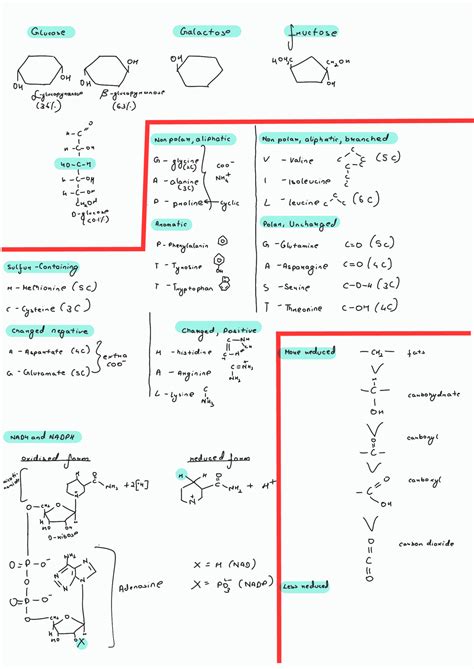 Glucose
Galactose
fructose
OH
OH
OH
OH
OH
HOH₂C
CH₂OH
OH
α-glucopyranose
(36%)
β-glucopyranose
(63%)
H-C
H-C-OH
HO-C-H
H-C-OH
H-C-OH
CH₂OH
D-glucose
(0.01%)
Non polar, aliphatic
G - glycine (2C)
A - alanine (3C)
P - proline
cyclic
COO⁻
NH₄⁺
Non polar, aliphatic, branched
V - Valine (5C)
I - Isoleucine
L - leucine (6C)
Aromatic
P - Phenylalanin
T - Tyrosine
OH
T - Tryptophan
Polar, Uncharged
G - Glutamine C=O (5C)
A - Asparagine C=O (4C)
S - Serine C-O-H (3C)
T - Threonine C-OH (4C)
Sulfur-Containing
M - Methionine (5C)
C - Cysteine (3C)
Charged negative
A - Aspartate (4C)
G - Glutamate (5C)
extra
COO⁻
Charged, Positive
H - histidine
A - Arginine
L - Lysine
More reduced
-CH₂- fats
H
-C-
OH
carbohydrate
carbonyl
carboxyl
OH
carbon dioxide
O
C
O
Less reduced
NADH and NADPH
oxidised form
reduced form
NH₂ + 2[H]
NH₂ + H⁺
D-ribose
Adenosine
X = H (NAD)
X = PO₃⁻ (NADP)